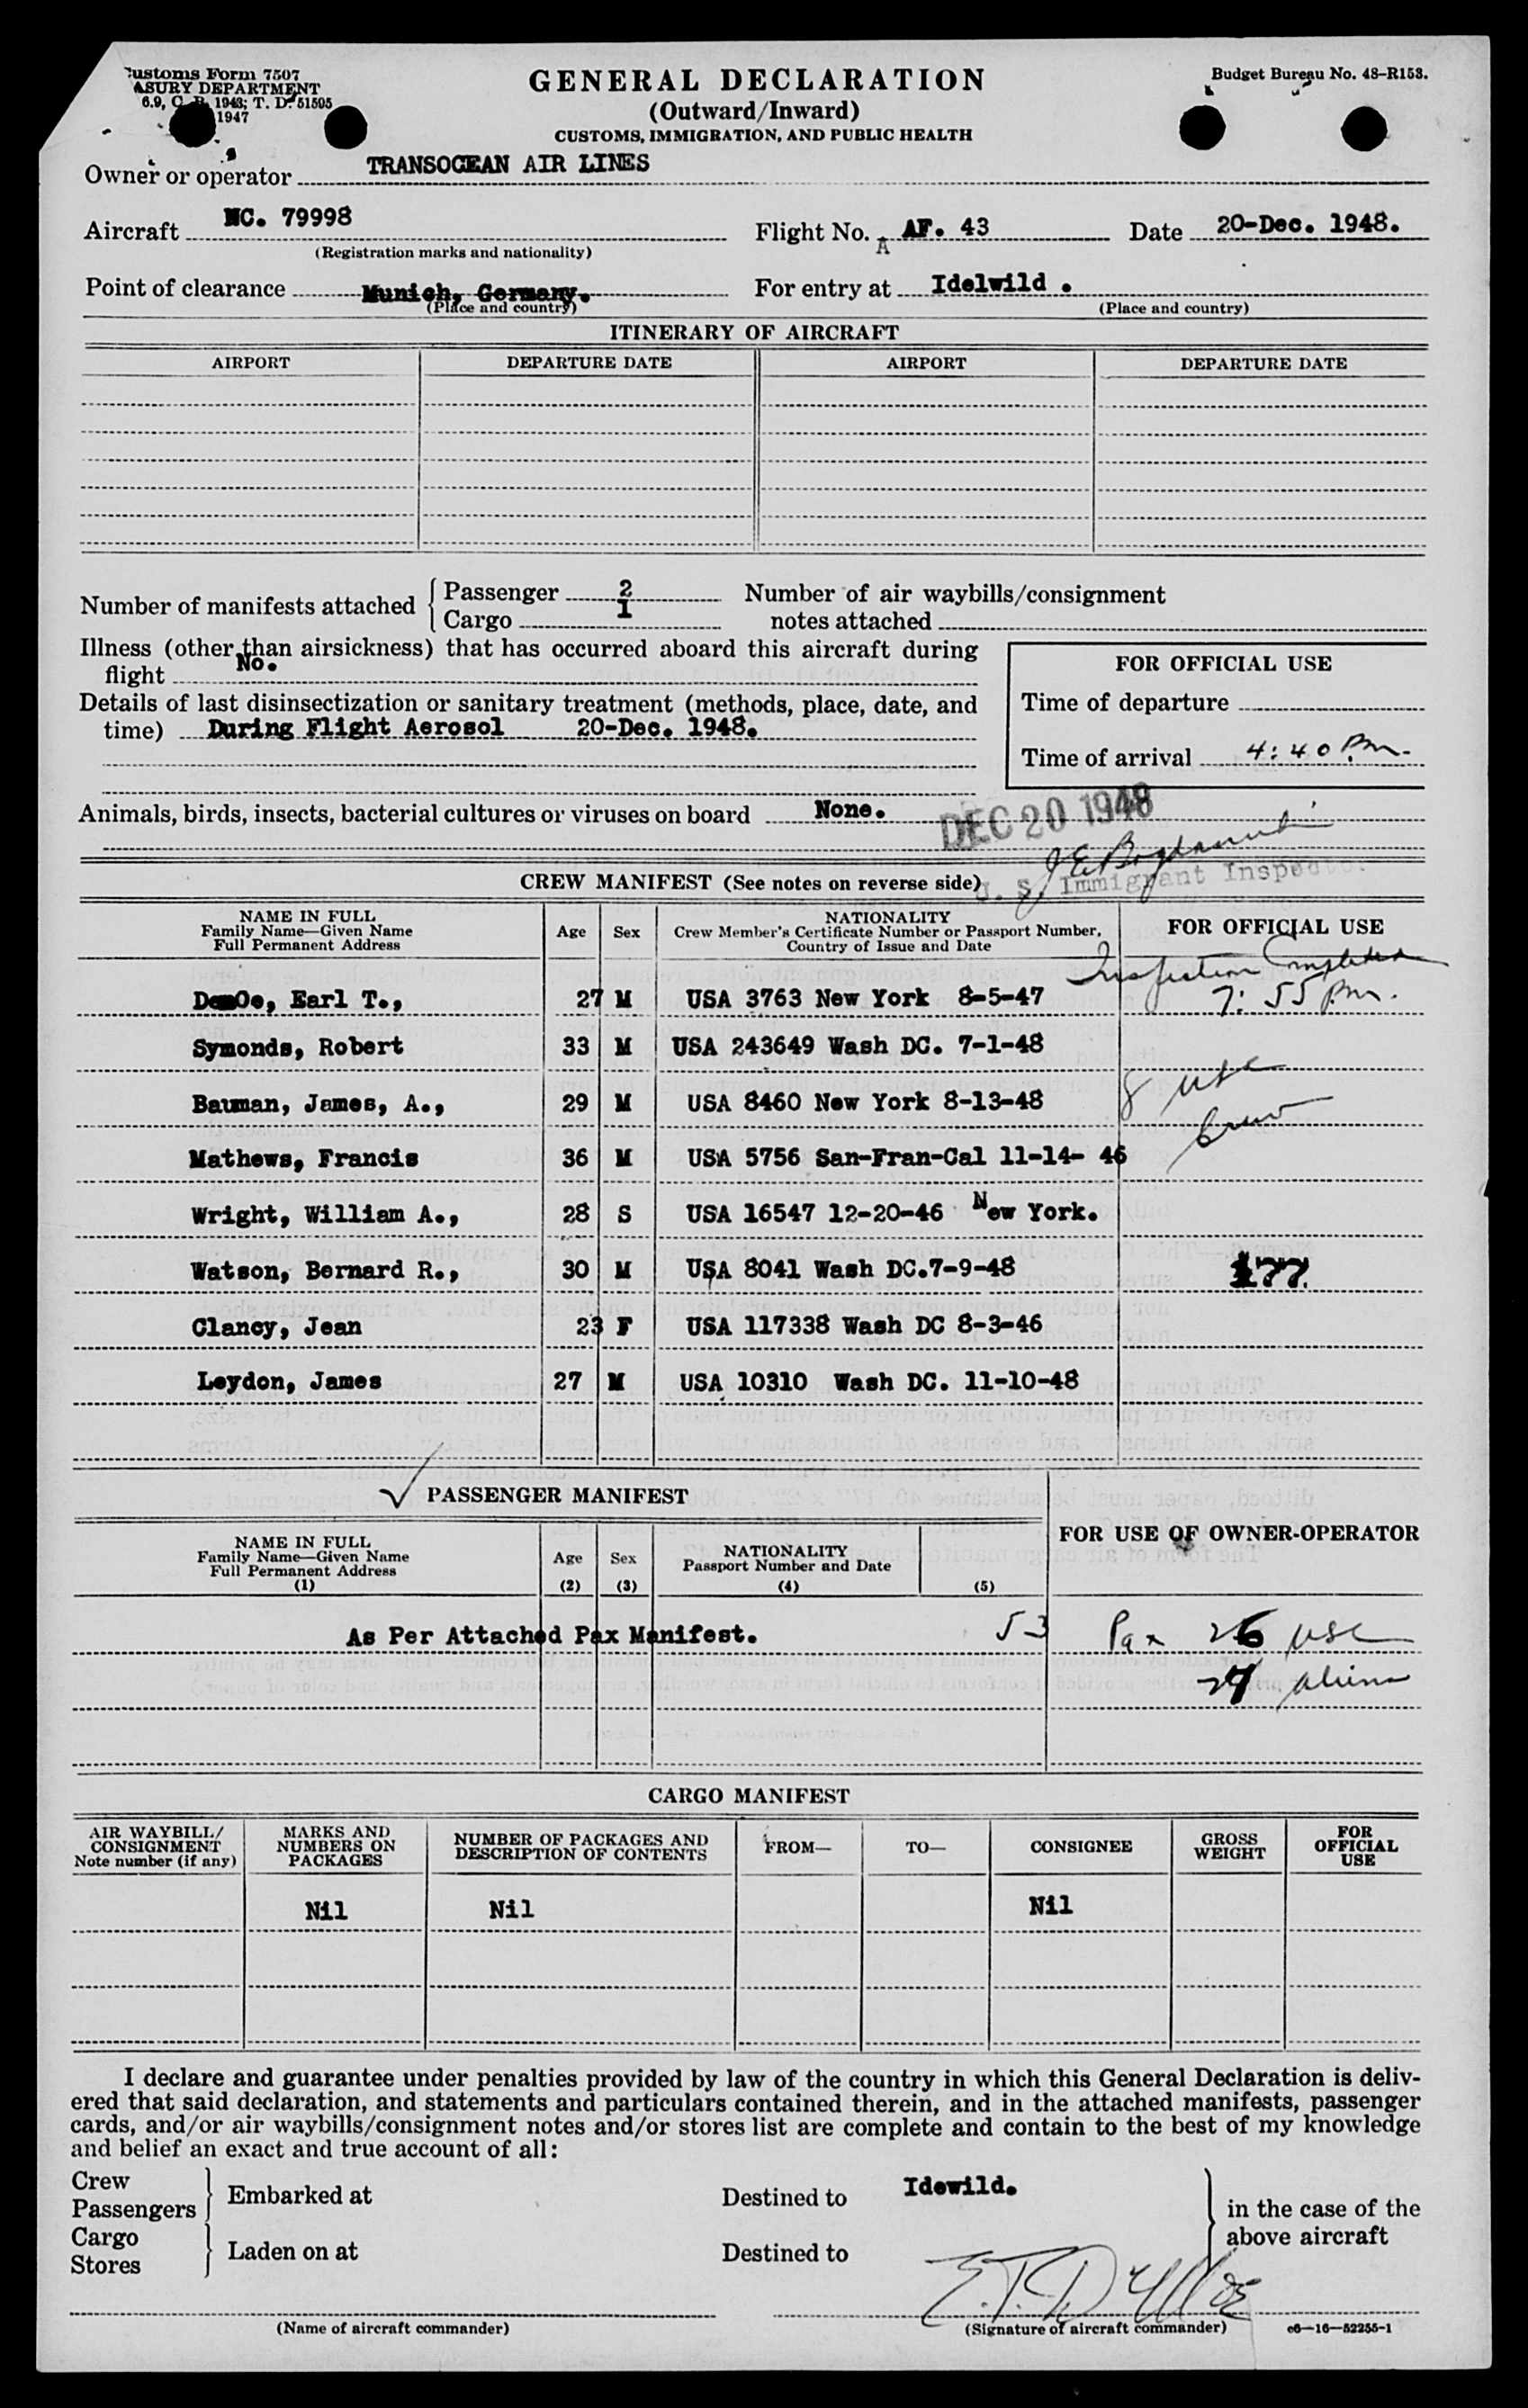 Customs Form 7507
TREASURY DEPARTMENT
6.9, C. R. 1943; T. D. 51595
1947
GENERAL DECLARATION
(Outward/Inward)
CUSTOMS, IMMIGRATION, AND PUBLIC HEALTH
Budget Bureau No. 48-R153.
Owner or operator TRANSOCEAN AIR LINES
Aircraft NC. 79998 Flight No. AF. 43 Date 20-Dec. 1948.
A
(Registration marks and nationality)
Point of clearance Munich, Germany. For entry at Idelwild .
(Place and country) (Place and country)
ITINERARY OF AIRCRAFT
AIRPORT DEPARTURE DATE AIRPORT DEPARTURE DATE
Number of manifests attached Passenger 2 Number of air waybills/consignment
Cargo 1 notes attached
Illness (other than airsickness) that has occurred aboard this aircraft during
flight No.
FOR OFFICIAL USE
Details of last disinsectization or sanitary treatment (methods, place, date, and
Time of departure
time) During Flight Aerosol 20-Dec. 1948.
Time of arrival 4:40 Pm.
Animals, birds, insects, bacterial cultures or viruses on board None.
DEC 20 1948
U. S. Immigrant Inspector
CREW MANIFEST (See notes on reverse side)
NAME IN FULL
Family Name—Given Name
Full Permanent Address
Age Sex
NATIONALITY
Crew Member's Certificate Number or Passport Number,
Country of Issue and Date
FOR OFFICIAL USE
Inspection Completed
7:55 pm.
Earl T., 27 M USA 3763 New York 8-5-47
Symonds, Robert 33 M USA 243649 Wash DC. 7-1-48
8 usc
Bauman, James, A., 29 M USA 8460 New York 8-13-48
Crew
Mathews, Francis 36 M USA 5756 San-Fran-Cal 11-14- 46
Wright, William A., 28 S USA 16547 12-20-46 New York.
Watson, Bernard R., 30 M USA 8041 Wash DC.7-9-48 177.
Clancy, Jean 23 F USA 117338 Wash DC 8-3-46
Leydon, James 27 M USA 10310 Wash DC. 11-10-48
✓ PASSENGER MANIFEST
NAME IN FULL
Family Name—Given Name
Full Permanent Address
(1)
Age
(2)
Sex
(3)
NATIONALITY
Passport Number and Date
(4) (5)
FOR USE OF OWNER-OPERATOR
As Per Attached Pax Manifest. 53 Pax 26 usc
27 aliens
CARGO MANIFEST
AIR WAYBILL/
CONSIGNMENT
Note number (if any)
MARKS AND
NUMBERS ON
PACKAGES
NUMBER OF PACKAGES AND
DESCRIPTION OF CONTENTS
FROM— TO— CONSIGNEE
GROSS
WEIGHT
FOR
OFFICIAL
USE
Nil Nil Nil
I declare and guarantee under penalties provided by law of the country in which this General Declaration is deliv-
ered that said declaration, and statements and particulars contained therein, and in the attached manifests, passenger
cards, and/or air waybills/consignment notes and/or stores list are complete and contain to the best of my knowledge
and belief an exact and true account of all:
Crew
Passengers
Embarked at Destined to Idewild.
in the case of the
above aircraft
Cargo
Stores
Laden on at Destined to
(Name of aircraft commander) (Signature of aircraft commander) c6—16—52255-1